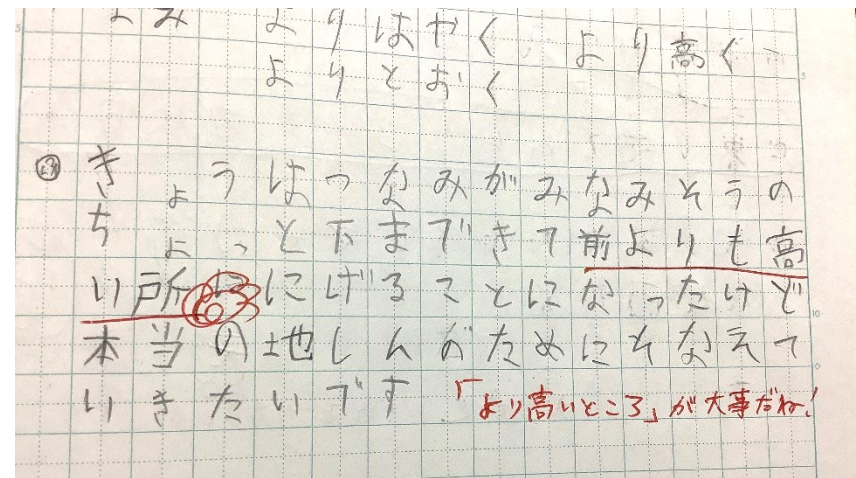 よみ よりはやく より高く
よりとおく
きょうはつなみがみなみそうの
ちょっと下まできて前よりも高
い所ににげることになったけど
本当の地しんのためにそなえて
いきたいです 「より高いところ」が大事だね!